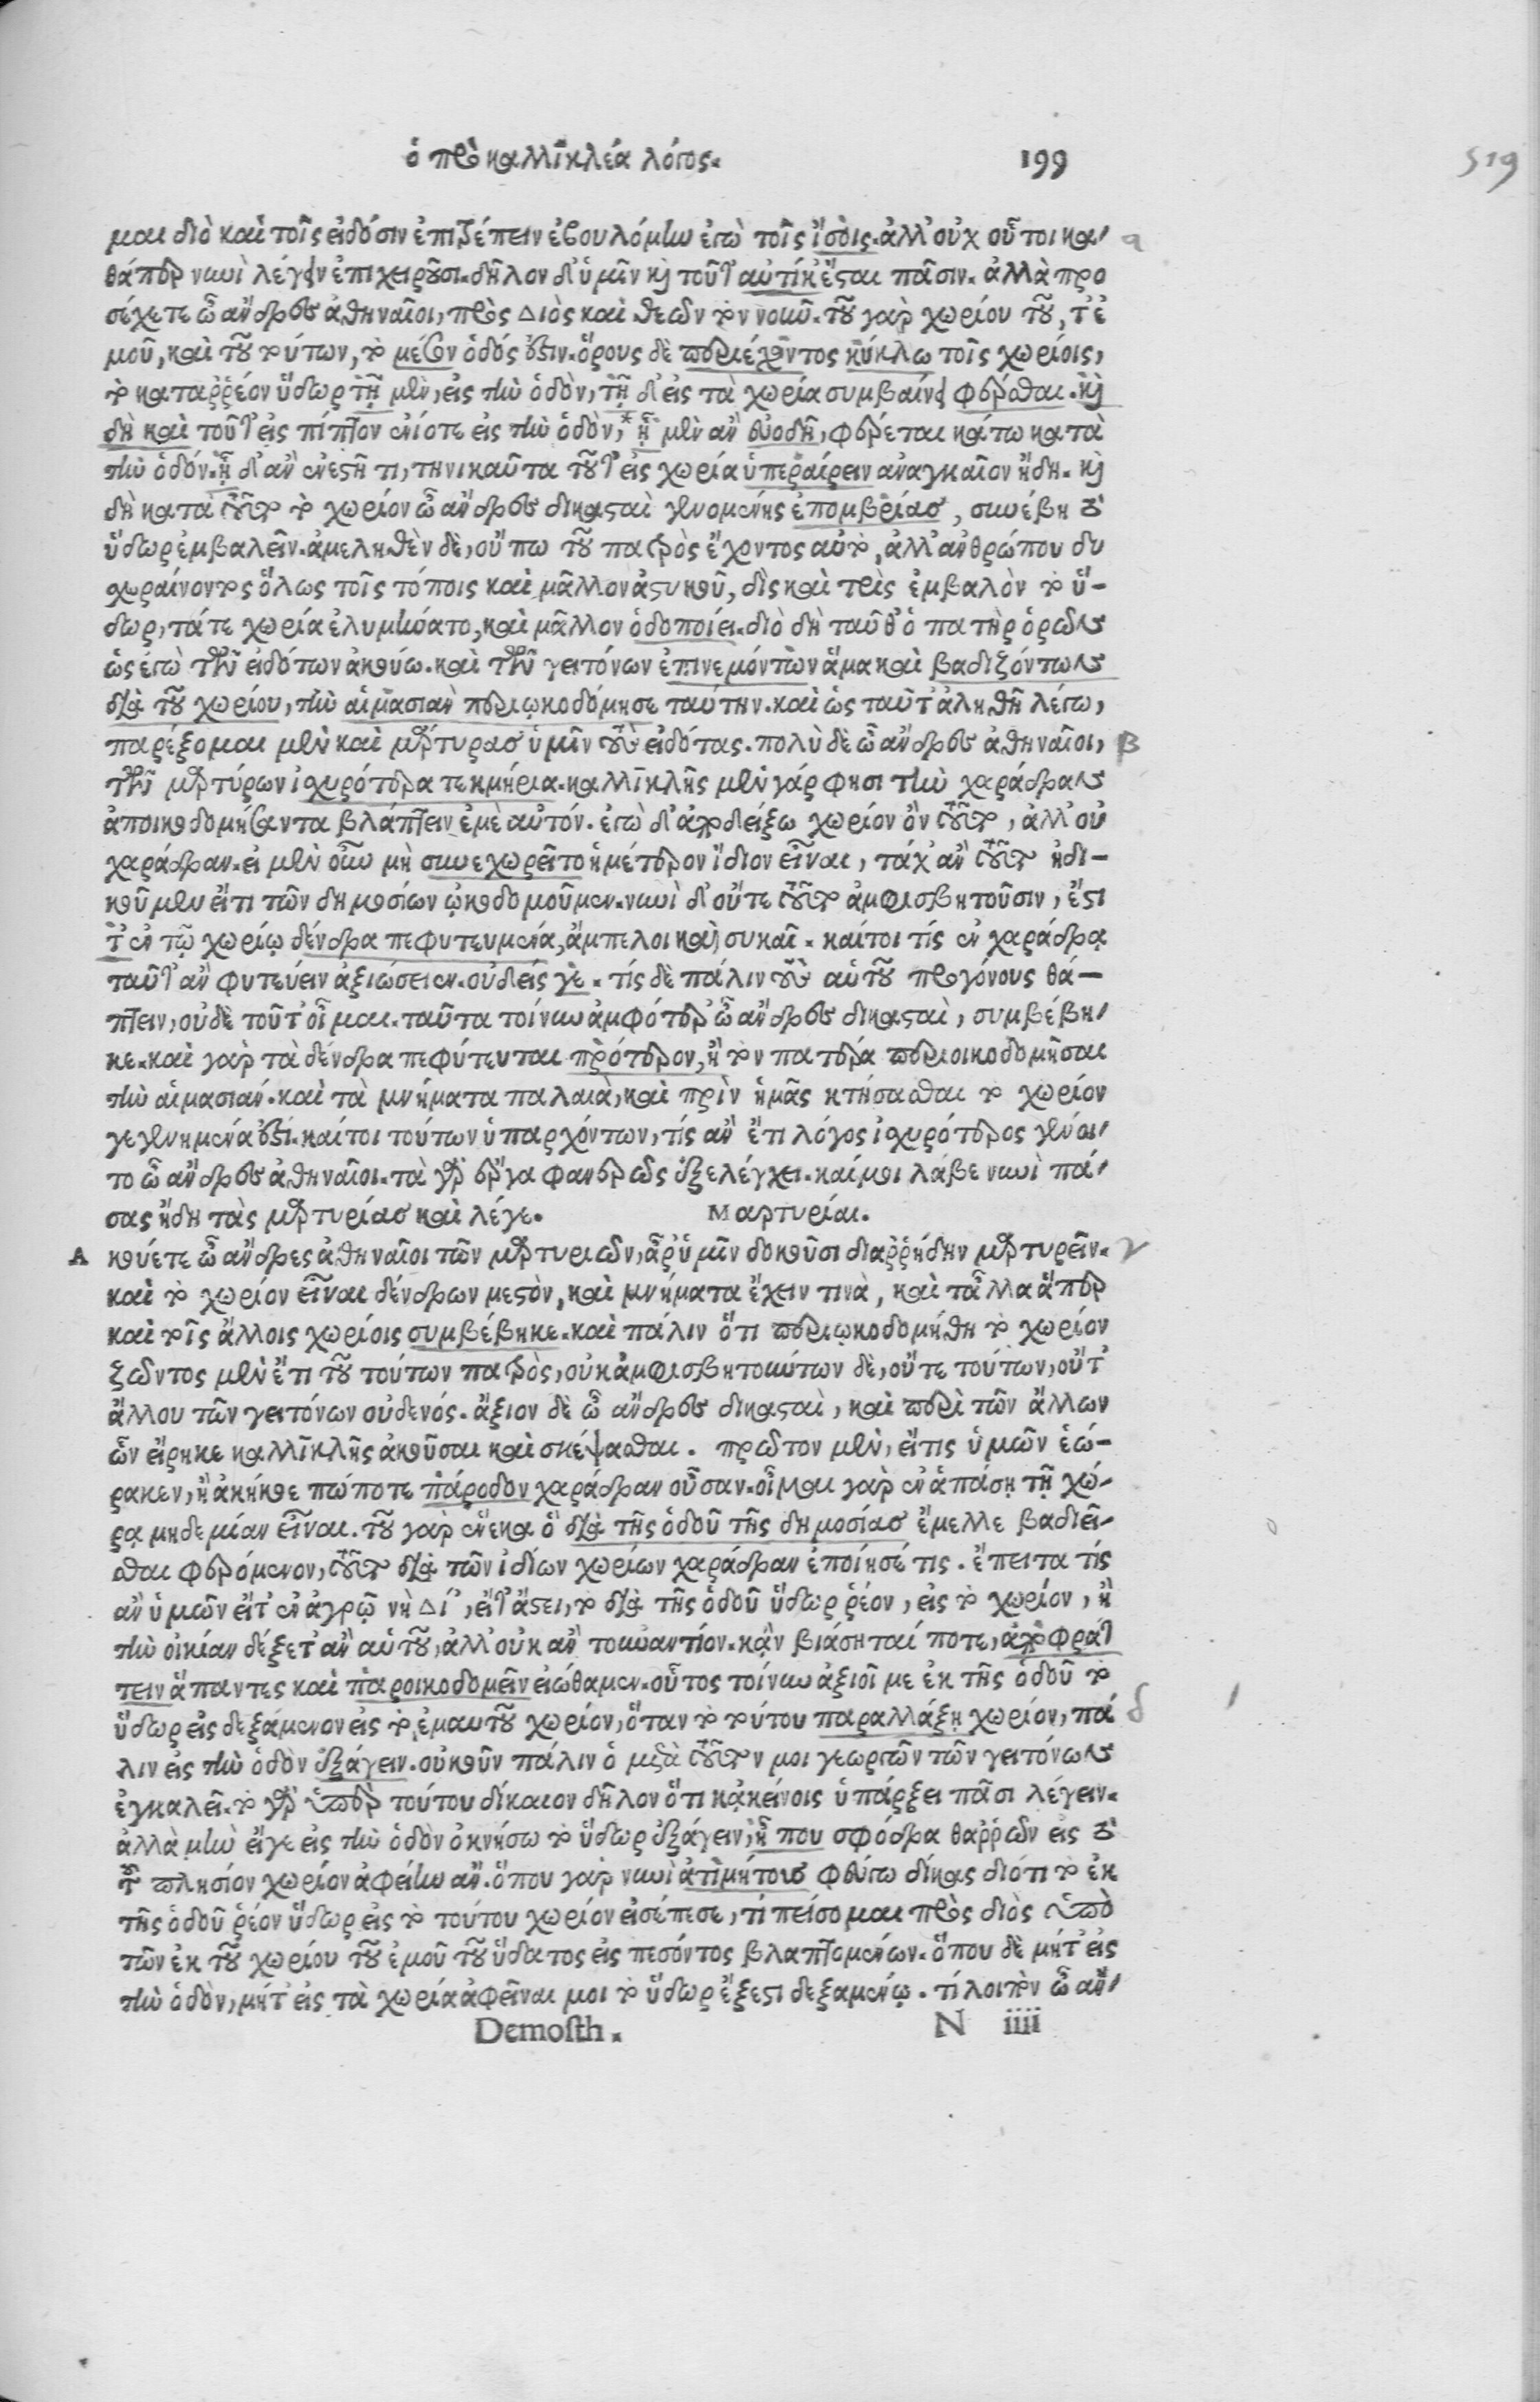 ὁ πρὸς καλλικλέα λόγος. 199
519
μαι διὸ καὶ τοῖς εἰδόσιν ἐπιτρέπειν ἐβουλόμην ἐγὼ τοῖς ἴσοις. ἀλλ' οὐχ οὗτοι κα- α
θάπερ νυνὶ λέγειν ἐπιχειροῦσι. δῆλον δ' ὑμῖν καὶ τοῦτ' αὐτίκ' ἔσται πᾶσιν. ἀλλὰ προ
σέχετε ὦ ἄνδρες ἀθηναῖοι, πρὸς Διὸς καὶ θεῶν τὸν νοῦν. τοῦ γὰρ χωρίου τοῦ, τ' ἐ
μοῦ, καὶ τοῦ τούτων, τὸ μέσον ὁδός ἐστιν. ὄρους δὲ περιέχοντος κύκλῳ τοῖς χωρίοις,
τὸ καταῤῥέον ὕδωρ τῇ μὲν, εἰς τὴν ὁδὸν, τῇ δ' εἰς τὰ χωρία συμβαίνει φέρεσθαι. καὶ
δὴ καὶ τοῦτ' εἰς πίπτον ἐνίοτε εἰς τὴν ὁδὸν, * ᾗ μὲν ἂν εὐοδῇ, φέρεται κάτω κατὰ
τὴν ὁδόν. ᾗ δ' ἂν ἐνεστῇ τι, τηνικαῦτα τοῦτ' εἰς χωρία ὑπεραίρειν ἀναγκαῖον ἤδη. καὶ
δὴ κατὰ τοῦτο τὸ χωρίον ὦ ἄνδρες δικασταὶ γενομένης ἐπομβρίας, συνέβη τὸ
ὕδωρ ἐμβαλεῖν. ἀμεληθὲν δὲ, οὔπω τοῦ πατρὸς ἔχοντος αὐτὸ, ἀλλ' ἀνθρώπου δυ
χωραίνοντος ὅλως τοῖς τόποις καὶ μᾶλλον ἀστικοῦ, δὶς καὶ τρὶς ἐμβαλὸν τὸ ὕ-
δωρ, τά τε χωρία ἐλυμήνατο, καὶ μᾶλλον ὁδοποίει. διὸ δὴ ταῦθ' ὁ πατὴρ ὁρῶν
ὡς ἐγὼ τῶν εἰδότων ἀκούω. καὶ τῶν γειτόνων ἐπινεμόντων ἅμα καὶ βαδιζόντων
διὰ τοῦ χωρίου, τὴν αἱμασιὰν περιῳκοδόμησε ταύτην. καὶ ὡς ταῦτ' ἀληθῆ λέγω,
παρέξομαι μὲν καὶ μάρτυρας ὑμῖν τοὺς εἰδότας. πολὺ δὲ ὦ ἄνδρες ἀθηναῖοι, β
τῶν μαρτύρων ἰσχυρότερα τεκμήρια. καλλικλῆς μὲν γάρ φησι τὴν χαράδραν
ἀποικοδομήσαντα βλάπτειν ἐμὲ αὐτόν. ἐγὼ δ' ἀποδείξω χωρίον ὂν τοῦτο, ἀλλ' οὐ
χαράδραν. εἰ μὲν οὖν μὴ συνεχωρεῖτο ἡμέτερον ἴδιον εἶναι, τάχ' ἂν τοῦτο ἠδι-
κοῦμεν εἴ τι τῶν δημοσίων ᾠκοδομοῦμεν. νυνὶ δ' οὔτε τοῦτο ἀμφισβητοῦσιν, ἔστι
τ' ἐν τῷ χωρίῳ δένδρα πεφυτευμένα, ἄμπελοι καὶ συκαῖ. καίτοι τίς ἐν χαράδρᾳ
ταῦτ' ἂν φυτεύειν ἀξιώσειεν. οὐδείς γε. τίς δὲ πάλιν τοὺς αὑτοῦ προγόνους θά-
πτειν, οὐδὲ τοῦτ' οἶμαι. ταῦτα τοίνυν ἀμφότερ' ὦ ἄνδρες δικασταὶ, συμβέβη-
κε. καὶ γὰρ τὰ δένδρα πεφύτευται πρότερον, ἢ τὸν πατέρα περιοικοδομῆσαι
τὴν αἱμασιάν. καὶ τὰ μνήματα παλαιὰ, καὶ πρὶν ἡμᾶς κτήσασθαι τὸ χωρίον
γεγενημένα ἐστί. καίτοι τούτων ὑπαρχόντων, τίς ἂν ἔτι λόγος ἰσχυρότερος γένοι-
το ὦ ἄνδρες ἀθηναῖοι. τὰ γὰρ ἔργα φανερῶς ἐξελέγχει. καί μοι λάβε νυνὶ πά-
σας ἤδη τὰς μαρτυρίας καὶ λέγε. Μαρτυρίαι.
Α κούετε ὦ ἄνδρες ἀθηναῖοι τῶν μαρτυριῶν, ἆρ' ὑμῖν δοκοῦσι διαῤῥήδην μαρτυρεῖν. γ
καὶ τὸ χωρίον εἶναι δένδρων μεστὸν, καὶ μνήματα ἔχειν τινὰ, καὶ τἆλλα ἅπερ
καὶ τοῖς ἄλλοις χωρίοις συμβέβηκε. καὶ πάλιν ὅτι περιῳκοδομήθη τὸ χωρίον
ζῶντος μὲν ἔτι τοῦ τούτων πατρὸς, οὐκ ἀμφισβητούντων δὲ, οὔτε τούτων, οὔτ'
ἄλλου τῶν γειτόνων οὐδενός. ἄξιον δὲ ὦ ἄνδρες δικασταὶ, καὶ περὶ τῶν ἄλλων
ὧν εἴρηκε καλλικλῆς ἀκοῦσαι καὶ σκέψασθαι. πρῶτον μὲν, εἴ τις ὑμῶν ἑώ-
ρακεν, ἢ ἀκήκοε πώποτε πάροδον χαράδραν οὖσαν. οἶμαι γὰρ ἐν ἁπάσῃ τῇ χώ-
ρᾳ μηδεμίαν εἶναι. τοῦ γὰρ ἕνεκα ὃ διὰ τῆς ὁδοῦ τῆς δημοσίας ἔμελλε βαδιεῖ-
σθαι φερόμενον, τοῦτο διὰ τῶν ἰδίων χωρίων χαράδραν ἐποίησέ τις. ἔπειτα τίς
ἂν ὑμῶν εἴτ' ἐν ἀγρῷ νὴ Δί', εἴτ' ἄστει, τὸ διὰ τῆς ὁδοῦ ὕδωρ ῥέον, εἰς τὸ χωρίον, ἢ
τὴν οἰκίαν δέξετ' ἂν αὑτοῦ, ἀλλ' οὐκ ἂν τοὐναντίον. κἂν βιάσηταί ποτε, ἀποφράτ
τειν ἅπαντες καὶ παροικοδομεῖν εἰώθαμεν. οὗτος τοίνυν ἀξιοῖ με ἐκ τῆς ὁδοῦ τὸ
ὕδωρ εἰς δεξάμενον εἰς τὸ ἐμαυτοῦ χωρίον, ὅταν τὸ τούτου παραλλάξῃ χωρίον, πά δ
λιν εἰς τὴν ὁδὸν ἐξάγειν. οὐκοῦν πάλιν ὁ μετὰ τοῦτόν μοι γεωργῶν τῶν γειτόνων
ἐγκαλεῖ. τὸ γὰρ ὑπὲρ τούτου δίκαιον δῆλον ὅτι κἀκείνοις ὑπάρξει πᾶσι λέγειν.
ἀλλὰ μὴν εἴγε εἰς τὴν ὁδὸν ὀκνήσω τὸ ὕδωρ ἐξάγειν, ἦ που σφόδρα θαῤῥῶν εἰς τὸ
τοῦ πλησίον χωρίον ἀφείην ἄν. ὅπου γὰρ νυνὶ ἀτιμήτους φεύγω δίκας διότι τὸ ἐκ
τῆς ὁδοῦ ῥέον ὕδωρ εἰς τὸ τούτου χωρίον εἰσέπεσε, τί πείσομαι πρὸς διὸς ὑπὸ
τῶν ἐκ τοῦ χωρίου τοῦ ἐμοῦ τοῦ ὕδατος εἰς πεσόντος βλαπτομένων. ὅπου δὲ μήτ' εἰς
τὴν ὁδὸν, μήτ' εἰς τὰ χωρία ἀφεῖναί μοι τὸ ὕδωρ ἔξεστι δεξαμένῳ. τί λοιπὸν ὦ ἄν-
Demosth. N iiii